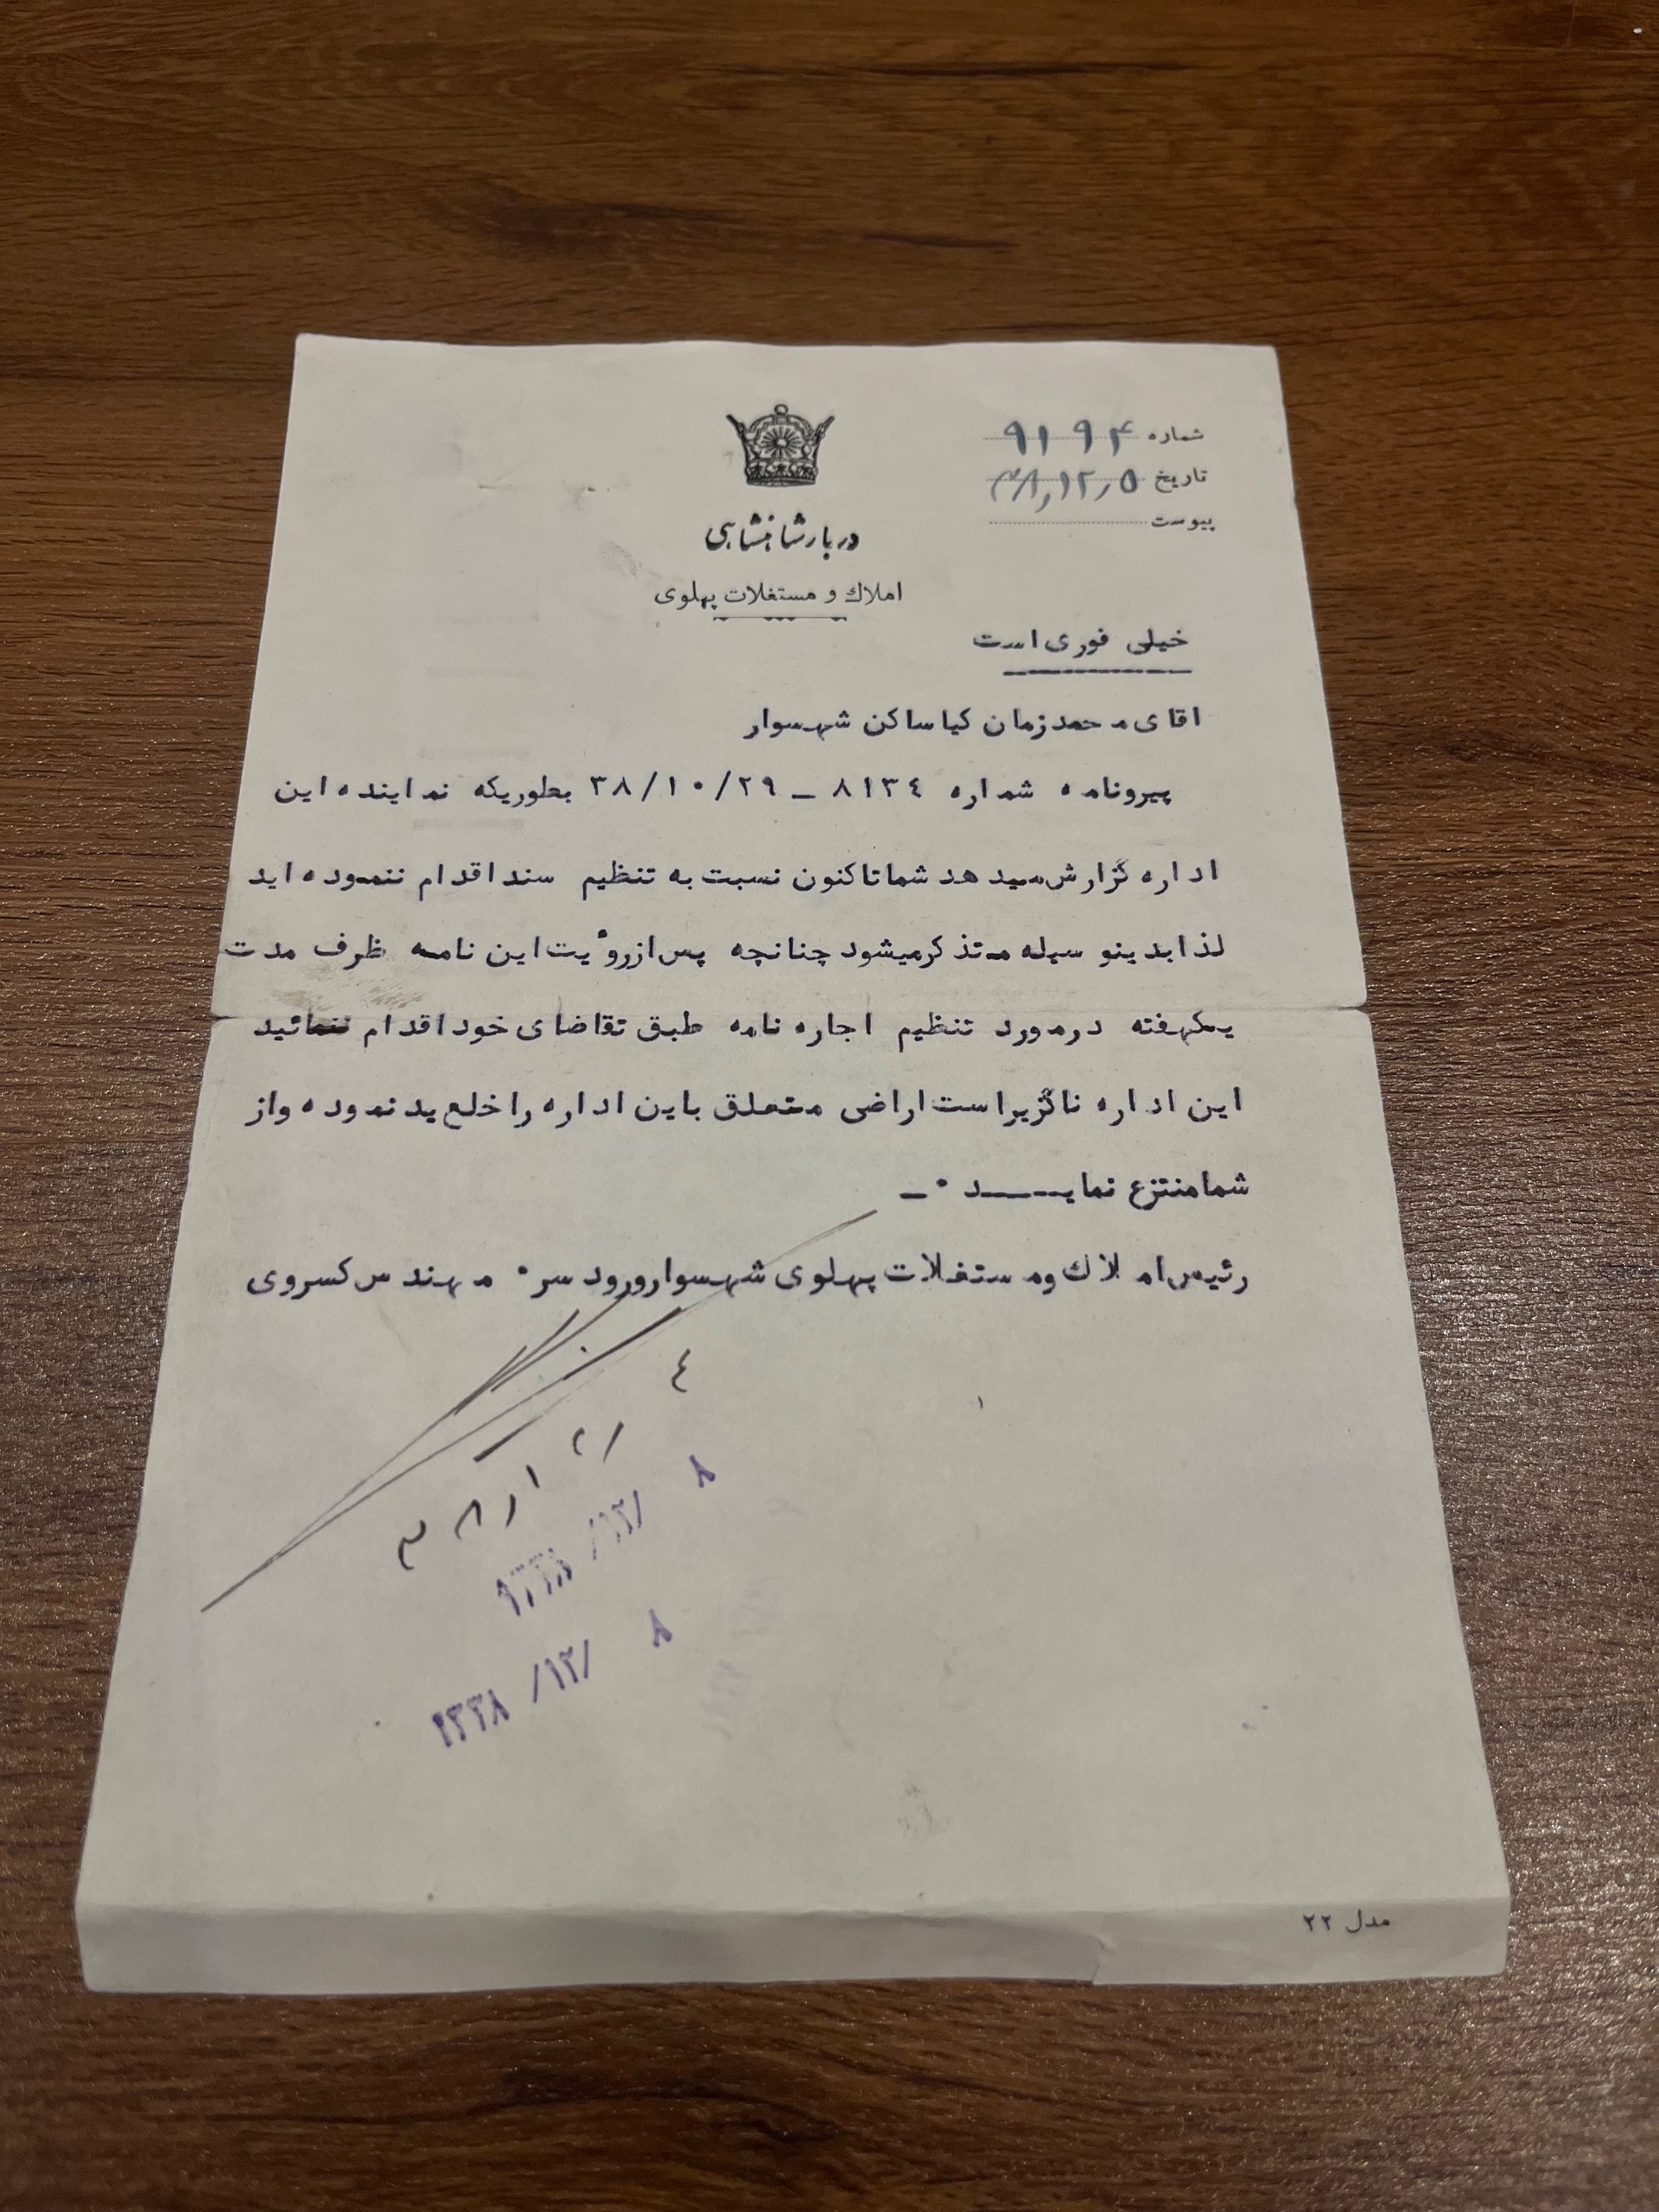 شماره ۹۱۹۴
تاریخ ۳۸٫۱۲٫۵
پیوست
دربار شاهنشاهی
املاك و مستغلات پهلوی
خیلی فوری است
اقای محمدزمان کیا ساکن شهسوار
پیرونامه شماره ۸۱۳٤ - ۳۸/۱۰/۲۹ بطوریکه نماینده این
اداره گزارش میدهد شما تاکنون نسبت به تنظیم سند اقدام ننموده اید
لذا بدینوسیله متذکر میشود چنانچه پس از رؤیت این نامه ظرف مدت
یکهفته در مورد تنظیم اجاره نامه طبق تقاضای خود اقدام ننمائید
این اداره ناگزیر است اراضی متعلق باین اداره را خلع ید نموده و از
شما منتزع نماید ۰-
رئیس املاك ومستغلات پهلوی شهسوار ورودسر ۰ مهندس کسروی
۸ /۱۲/ ۱۳۳۸
۸ /۱۲/ ۱۳۳۸
مدل ۲۲